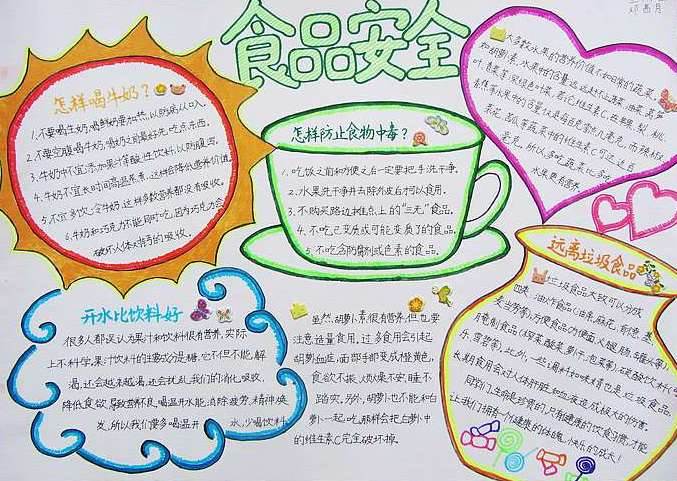 食品安全
邓西月
怎样喝牛奶?
1.不要喝生奶,喝鲜奶要加热,以防病从口入。
2.不要空腹喝牛奶,喝奶之前最好先吃点东西。
3.牛奶中不宜添加果汁等酸性饮料,以防腹泻。
4.牛奶不宜长时间高温蒸煮,这样会降低营养价值。
5.不宜多饮冰牛奶,这样多数营养都没有吸收。
6.牛奶和巧克力不能同时吃,因为巧克力会
破坏人体对钙的吸收。
怎样防止食物中毒?
1.吃饭之前和方便之后一定要把手洗干净。
2.水果洗干净并去除外皮后才可以食用。
3.不购买路边摊点上的“三无”食品。
4.不吃已变质或可能变质了的食品。
5.不吃含防腐剂或色素的食品。
大多数水果的营养价值不如日常的蔬菜。
如胡萝卜素,水果中的含量
远远
所以多吃蔬菜比多吃
水果更有营养
开水比饮料好
很多人都误认为果汁和饮料很有营养,实际
上不科学,果汁饮料的主要成分是糖,它不但不能解
渴,还会越来越渴,还会扰乱我们的消化,吸收,
降低食欲,导致营养不良,喝温开水能消除疲劳,精神焕
发,所以我们要多喝温开水,少喝饮料
虽然,胡萝卜素很有营养,但也要
注意适量食用,过多食用会引起
胡萝血症,面部手部变成橙黄,
食欲不振,烦燥不安,睡不
踏实。另外,胡萝卜也不能和白
萝卜一起吃,那样会把白萝卜中
的维生素C完全破坏掉。
远离垃圾食品
垃圾食品大致可以分成
四类:油炸食品(油条,麻花,
麦当劳等)方便食品(方便面,火腿肠,罐头等),
腌制食品(榨菜,酸菜,
等)。此外,一些
长期食用会对人体肝脏
造成极大的伤害。
同学们,生命是珍贵的,只有健康的饮食习惯,才能
让我们拥有个健康的体魄,快乐的成长!